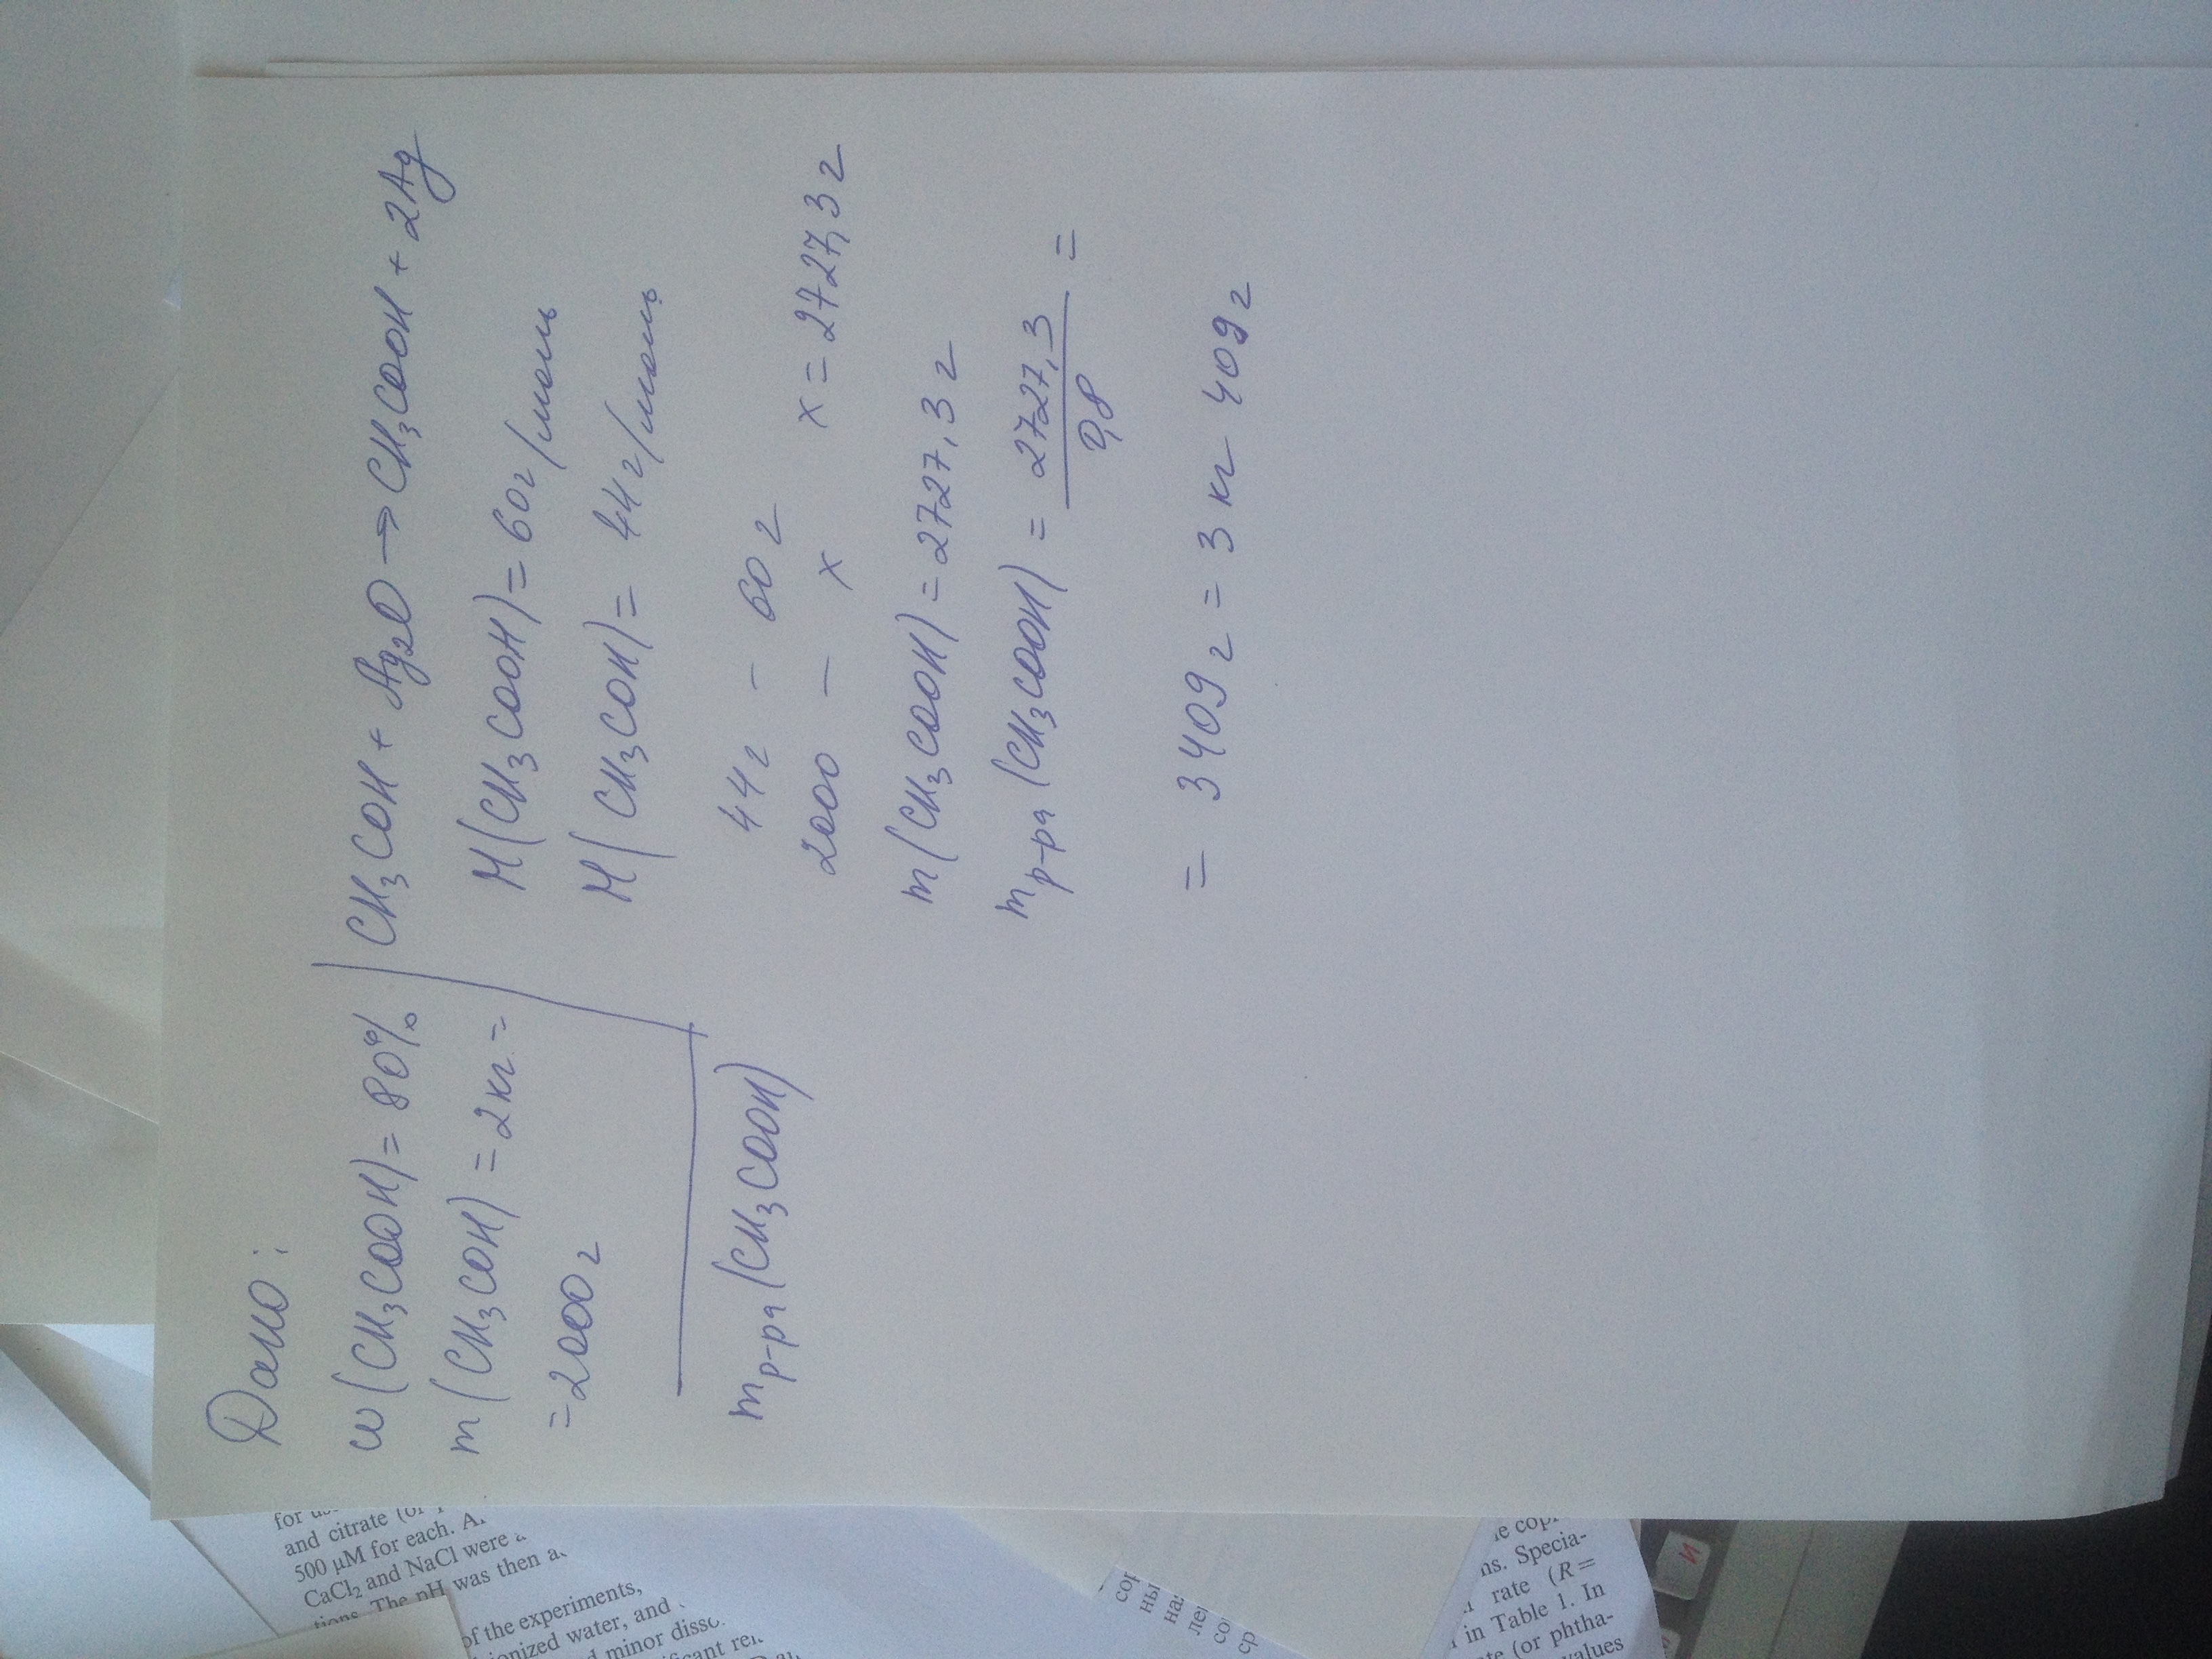 Дано:
w(CH₃COOH) = 80%
m(CH₃COH) = 2кг =
= 2000 г
mр-ра(CH₃COOH)
CH₃COH + Ag₂O → CH₃COOH + 2Ag
M(CH₃COOH) = 60г/моль
M(CH₃COH) = 44г/моль
44г – 60г
2000 – x x = 2727,3г
m(CH₃COOH) = 2727,3г
mр-ра(CH₃COOH) = 2727,3 / 0,8 =
= 3409г = 3кг 409г
for
and citrate (or
500 μM for each.
CaCl₂ and NaCl were
The pH was then
of the experiments,
ionized water, and
minor
сор
ны
на
ле
со
ср
ns. Specia-
rate (R =
in Table 1. In
(or phtha-
values
И